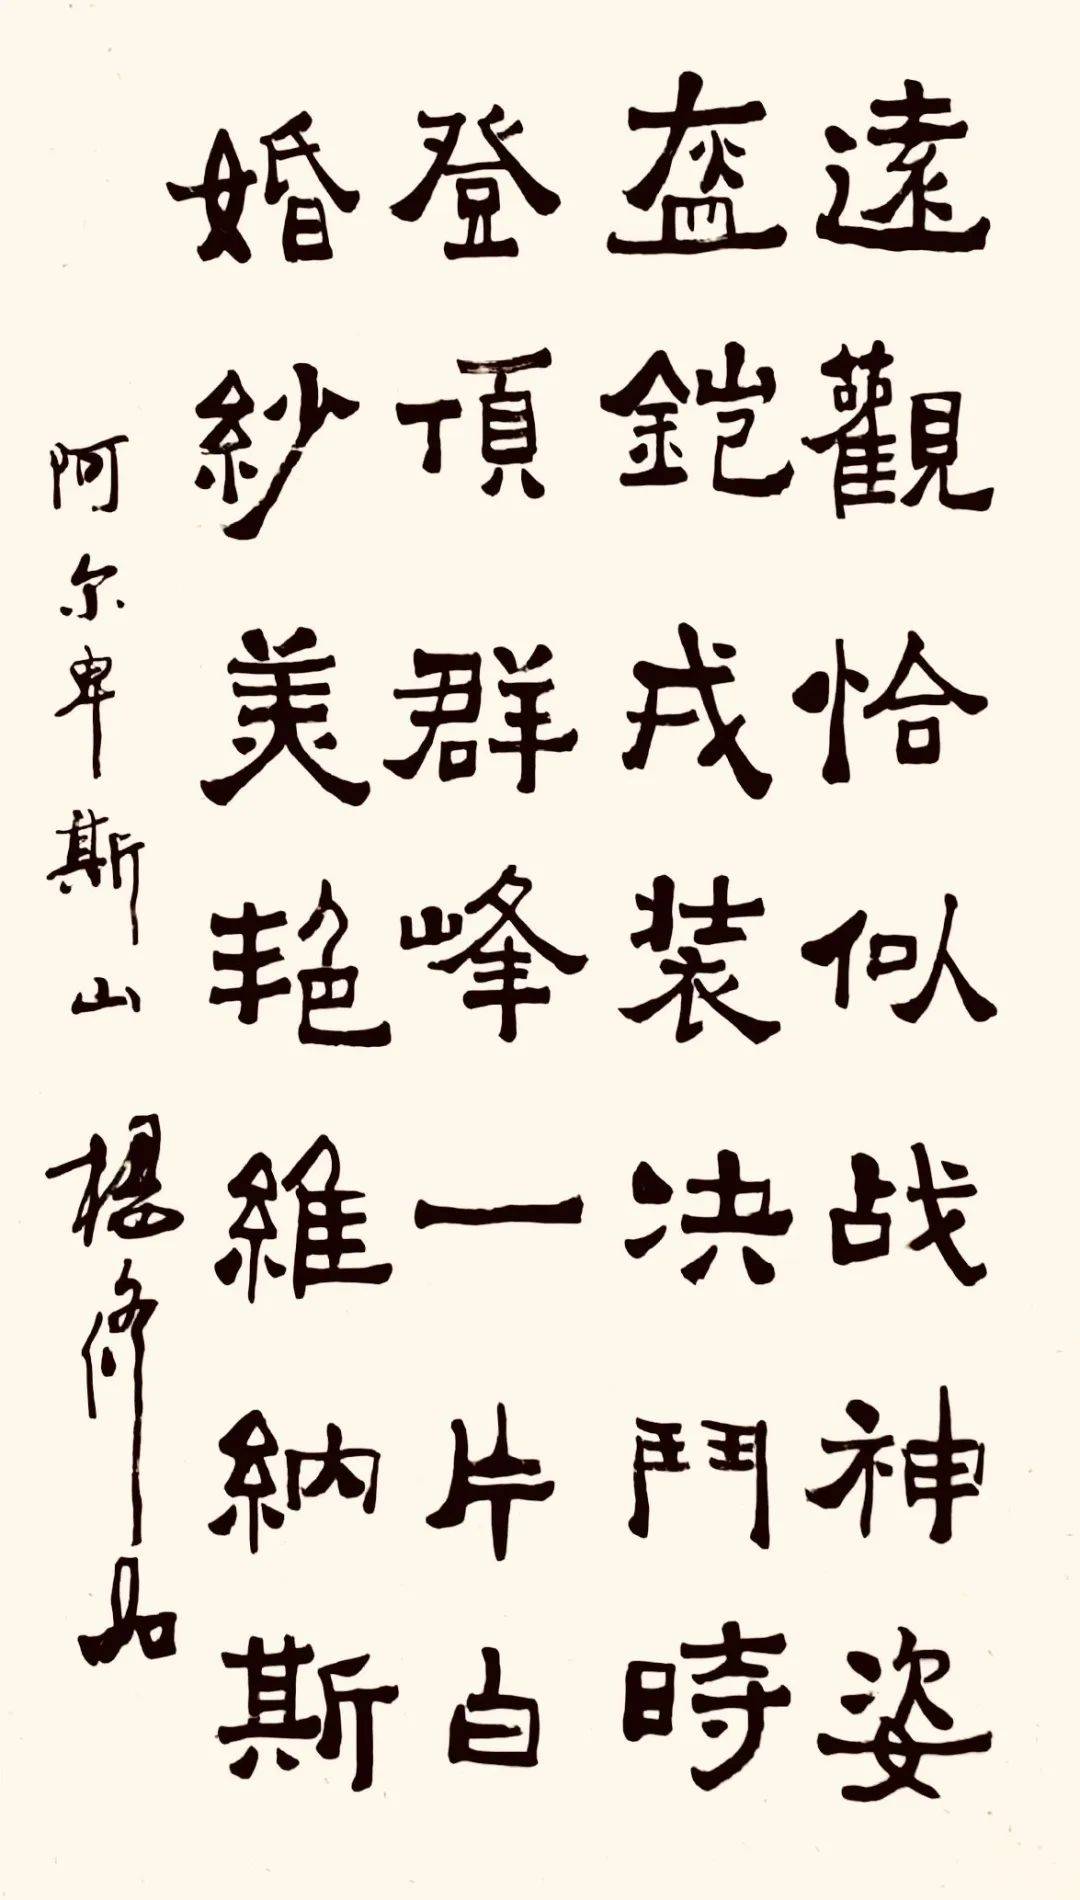 遠觀恰似战神姿
盔鎧戎装决鬥時
登頂群峰一片白
婚紗美艳維納斯
阿尔卑斯山
楊修品